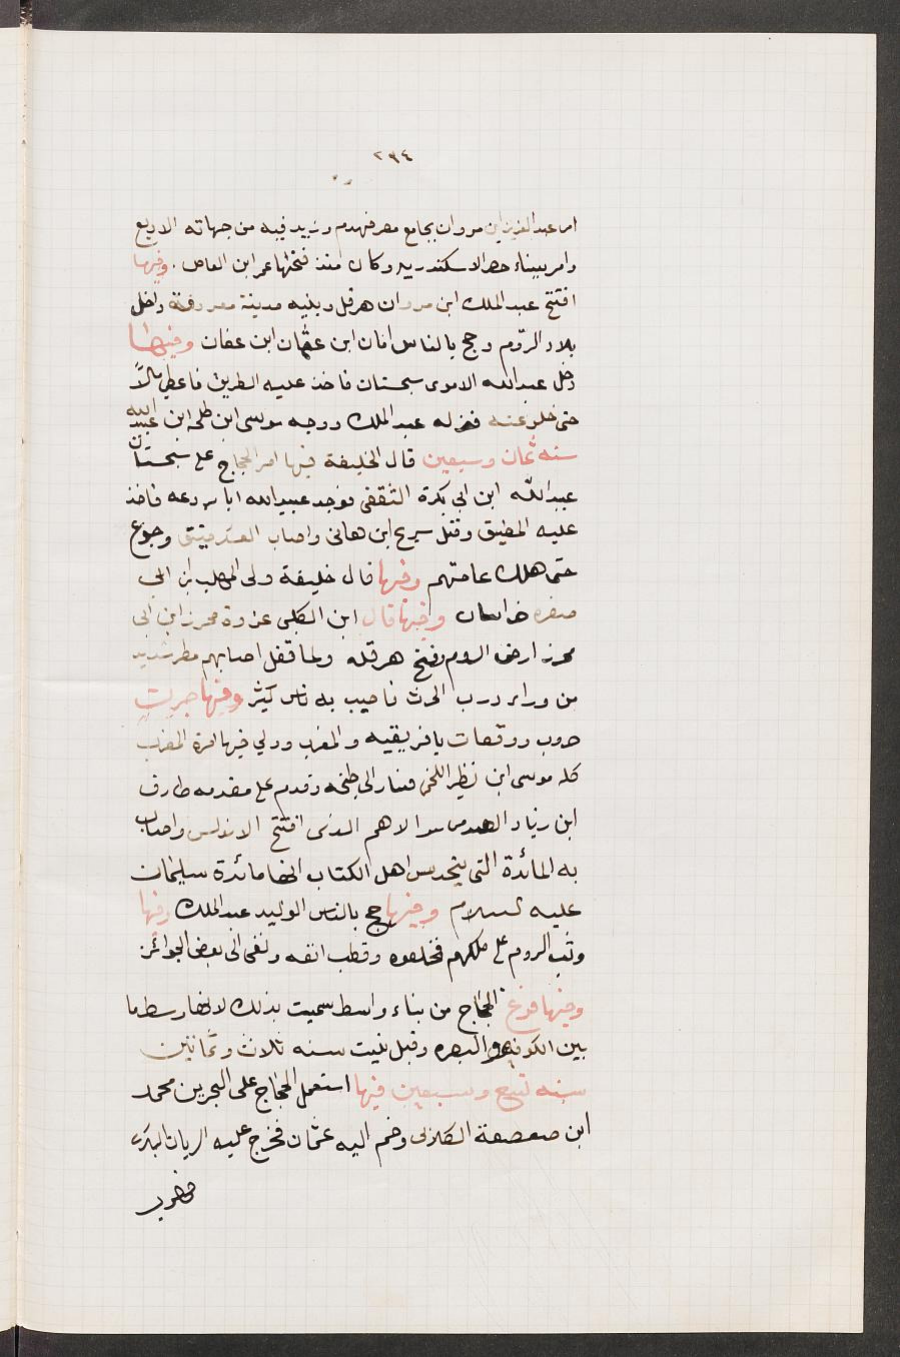 ٢٩٤
امر عبد العزيز ابن مروان بجامع مصر فهدم وزيد فيه من جهاته الاربع
وامر ببناء حصن الاسكندريه وكان منذ فتحها عمر ابن العاص . وفيها
افتتح عبد الملك ابن مروان هرقل وبليه مدينة معروفة داخل
بلاد الروم وحج بالناس ابان ابن عثمان ابن عفان وفيها
دخل عبدالله الاموى سجستان فاخذ عليه الطريق فاعطى مالاً
حتى خلو عنه فعزله عبد الملك ووجه موسى ابن طلحه ابن عبد الله
سنه ثمان وسبعين قال الخليفة فيها امر الحجاج على سجستان
عبيد الله ابن ابى بكرة الثقفى فوجد عبيد الله ابا بردعه فاخذ
عليه المضيق وقتل سريح ابن هانى واصاب وجوع
حتى هلك عامتهم وفيها قال خليفة ولى المهلب ابن ابى
صفره خراسان وفيها قال ابن الكلبى غزوة محرز ابن ابى
محرز ارض الروم بفتح هرقله ولما قفل اصابهم مطر شديد
من وراء درب الحرث فاصيب به ناس كثير وفيها جريت
حروب ووقعات بافريقيه والمغرب وولي فيها امرة المغرب
كله موسى ابن نظير اللخمى فسار الى طنجه وقدم على مقدمه طارق
ابن زياد الذى افتتح الاندلس واصاب
به المائدة التى يتحدس اهل الكتاب انها مائدة سليمان
عليه لسلام وفيها حج بالناس الوليد عبد الملك وفيها
وثب الروم على ملكهم فخلعوه وقطب انفه ونفى الى بعض الجزائر
وفيها فرغ الحجاج من بناء واسط سميت بذلك لانها وسط ما
بين الكوفه والبصره وقبل بنيت سنه ثلاث وثمانين
سنه تسع وسبعين فيها استعمل الحجاج على البحرين محمد
ابن صعصعة الكلابى وضم اليه عثمان فخرج عليه الريان البكرى